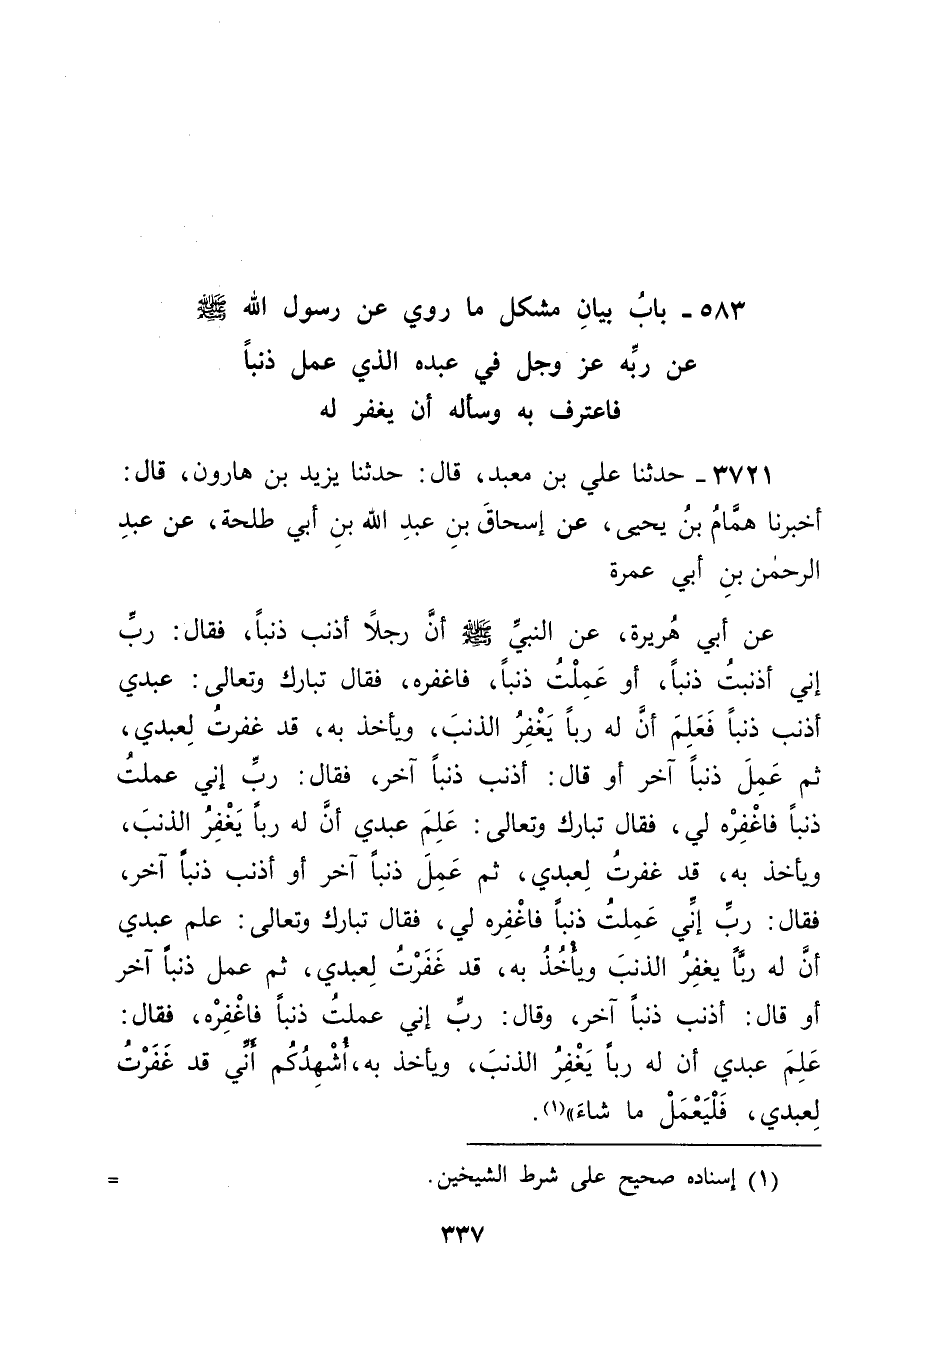 ٥٨٣ ـ بابُ بيانِ مشكل ما روي عن رسول الله ﷺ
عن ربِّه عز وجل في عبده الذي عمل ذنباً
فاعترف به وسأله أن يغفر له
٣٧٢١ ـ حدثنا علي بن معبد، قال: حدثنا يزيد بن هارون، قال:
أخبرنا همَّامُ بنُ يحيى، عن إسحاقَ بنِ عبدِ الله بنِ أبي طلحة، عن عبدِ
الرحمٰن بنِ أبي عمرة
عن أبي هُريرة، عن النبيِّ ﷺ أنَّ رجلاً أذنب ذنباً، فقال: ربِّ
إني أذنبتُ ذنباً، أو عَمِلْتُ ذنباً، فاغفره، فقال تبارك وتعالى: عبدي
أذنب ذنباً فَعَلِمَ أنَّ له رباً يَغْفِرُ الذنبَ، ويأخذ به، قد غفرتُ لِعبدي،
ثم عَمِلَ ذنباً آخر أو قال: أذنب ذنباً آخر، فقال: ربِّ إني عملتُ
ذنباً فاغْفِرْه لي، فقال تبارك وتعالى: عَلِمَ عبدي أنَّ له رباً يَغْفِرُ الذنبَ،
ويأخذ به، قد غفرتُ لِعبدي، ثم عَمِلَ ذنباً آخر أو أذنب ذنباً آخر،
فقال: ربِّ إنِّي عَمِلتُ ذنباً فاغْفِره لي، فقال تبارك وتعالى: علم عبدي
أنَّ له ربّاً يغفِرُ الذنبَ ويأْخُذُ به، قد غَفَرْتُ لِعبدي، ثم عمل ذنباً آخر
أو قال: أذنب ذنباً آخر، وقال: ربِّ إني عملتُ ذنباً فاغْفِرْه، فقال:
عَلِمَ عبدي أن له رباً يَغْفِرُ الذنبَ، ويأخذ به، أُشْهِدُكُم أَنِّي قد غَفَرْتُ
لِعبدي، فَلْيَعْمَلْ ما شاءَ»(١).
(١) إسناده صحيح على شرط الشيخين. =
٣٣٧